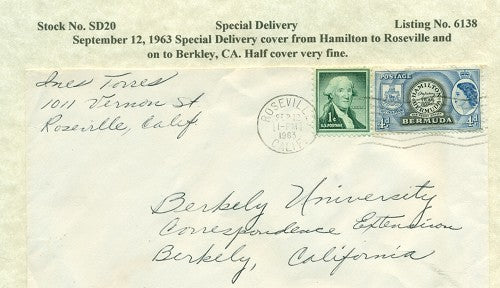 Stock No. SD20 Special Delivery Listing No. 6138
September 12, 1963 Special Delivery cover from Hamilton to Roseville and
on to Berkley, CA. Half cover very fine.
Ines Torres
1011 Vernon St
Roseville, Calif
ROSEVILLE
SEP 12
1963
CALIF.
1¢
U.S. POSTAGE
POSTAGE
HAMILTON
BERMUDA
4d
4d
BERMUDA
Berkely University
Correspondence Extension
Berkely, California